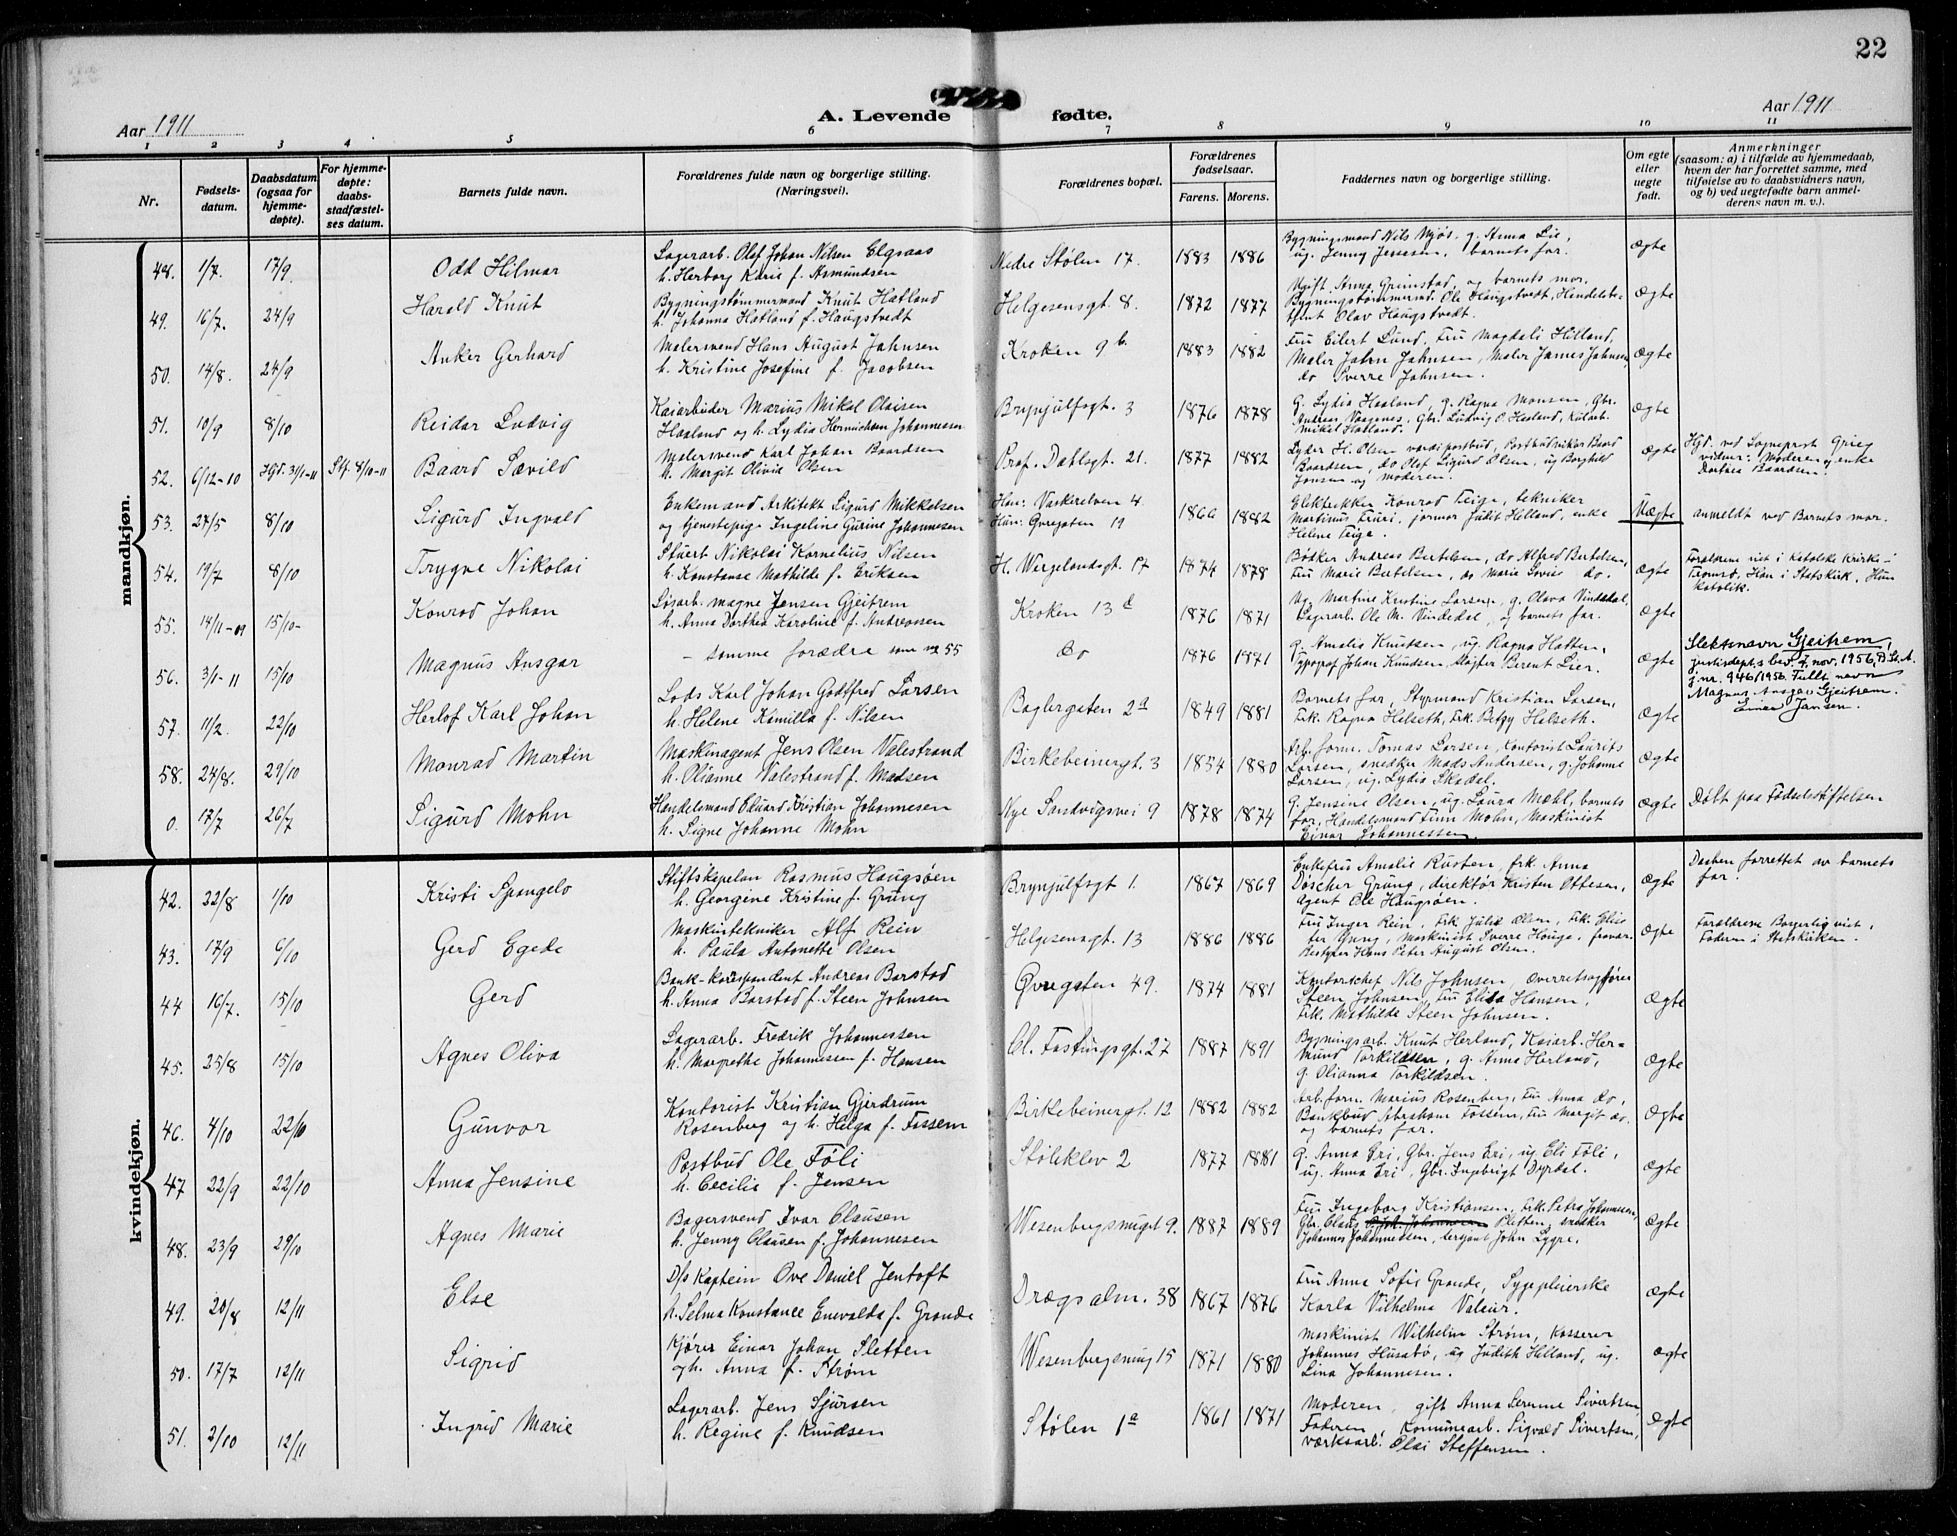 22
Aar 1911
A. Levende fødte.
Aar 1911
1 2 3 4 5 6 7 8 9 10 11
Nr.
Fødsels-
datum.
Daabsdatum
(ogsaa for
hjemme-
døpte).
For hjemme-
døpte:
daabs-
stadfæstel-
ses datum.
Barnets fulde navn.
Forældrenes fulde navn og borgerlige stilling.
(Næringsvei).
Forældrenes bopæl.
Forældrenes
fødselsaar.
Farens. Morens.
Faddernes navn og borgerlige stilling.
Om egte
eller
uegte
født.
Anmerkninger
(saasom: a) i tilfælde av hjemmedaab,
hvem der har forrettet samme, med
tilføielse av to daabsvidners navn,
og b) ved uegtefødte barn anmel-
derens navn m. v.).
mandkjøn.
48. 1/7. 17/9 Odd Hilmar
Lagerarb. Olaf Johan Nilsen Elgsaas
h. Herborg Karie f. Asmundsen
Nedre Stølen 17. 1883 1886
Bygningsmand Nils Mjøs, g. Anna Lie,
ug. Jenny Jenssen, barnets far.
Ægte
49. 16/7. 24/9 Harald Knut
Bygningstømmermand Knut Hatland
h. Johanna Hatland f. Haugstvedt
Helgesensgt. 8. 1872 1877
Ugift Anna Grimstad, og barnets mor.
Bygningstømmermd. Ole Haugstvedt, Handelsbe-
tjent Olav Haugstvedt.
Ægte
50. 14/8. 24/9 Anker Gerhard
Malersvend Hans August Jahnsen
h. Kristine Josefine f. Jacobsen
Kroken 9 b. 1883 1882
Fru Eilert Lund, Fru Magdali Hilland,
Maler John Jahnsen, Maler James Jahnsen,
do Sverre Jahnsen.
Ægte
51. 10/9 8/10 Reidar Ludvig
Kaiarbeider Marius Mikal Olaisen
Haaland og h. Lydia Hermichsen Johannesen
Brynjulfsgt. 3 1876 1878
G. Lydia Haaland, g. Ragna Monsen, Gbr.
Andreas Vaagenes, Gbr. Ludvig O. Haaland, Kularb.
Mikel Haaland.
Ægte
52. 6/12-10 Hjd. 31/1-11 Stf. 8/10-11 Baard Sævild
Malersvend Karl Johan Baardsen
h. Margit Olivia Olsen
Prof. Dahlsgt. 21. 1877 1882
Lyder H. Olsen værdipostbud, Baard
Baardsen, do Olaf Sigurd Olsen, ug Borghild
Jonsen og moderen.
Ægte
Hjd. ved Sogneprest Grieg
vidner: Moderen og enke
Dorthea Baardsen.
53. 27/5 8/10 Sigurd Ingvald
Enkemand Arkitekt Sigurd Mikkelsen
og tjenestepige Ingeline Gurine Johannesen
Han: Vaskerelven 4
Hun: Øvregaten 19
1866 1882
Elektrikker Konrad Teige, tekniker
Martinus Fluri, jormor Judit Helland, enke
Helene Teige.
Uægte
anmeldt ved Barnets mor.
54. 19/7 8/10 Trygve Nikolai
Stuert Nikolai Kornelius Nilsen
h. Konstanse Mathilde f. Eriksen
H. Wergelandsgt. 17 1874 1878
Bødker Andreas Bertelsen, do Alfred Bertelsen,
Fru Marie Bertelsen, do Marie Lovise do.
Ægte
Forældrene viet i katolske Kirke i
Tromsø, Han i Statskirk. Hun
Katolik.
55. 14/11-09 15/10- Konrad Johan
Løsarb. Magne Jensen Gjeitrem
h. Anna Dorthea Karoline f. Andreassen
Kroken 13 d 1876 1871
Ug. Martine Kristine Larsen, g. Olava Vindedal,
Lagerarb. Ole M. Vindedal, og barnets far.
Ægte
56. 3/1-11 15/10 Magnus Ansgar
- samme forældre som no 55
do 1876 1871
G. Amalia Knutsen, ug. Ragna Hatten,
Typograf Johan Knudsen, Sløifer Berent Lier.
Ægte
Slektsnavn Gjeitrem,
justisdept.s bev. 7. nov. 1956, B. St. A.
j.nr. 946/1956. Fullt navn
Magnus Ansgar Gjeitrem.
Einar Jansen.
57. 11/2. 22/10 Herlof Karl Johan
Lods Karl Johan Godtfred Larsen
h. Helene Kamilla f. Nilsen
Baglergaten 2 a 1849 1881
Barnets far, Styrmand Kristian Larsen,
Frk. Ragna Helseth, Frk. Betzy Helseth.
Ægte
58. 24/8. 29/10 Monrad Martin
Maskinagent Jens Olsen Valestrand
h. Olianne Valestrand f. Madsen
Birkebeinergt. 3 1854 1880
Arb. form. Tomas Larsen, Kontorist Laurits
Larsen, snedker Mads Andersen, g. Johanne
Larsen, ug. Lydia Skadal.
Ægte
0. 17/7 26/7 Sigurd Mohn
Handelsmand Eduard Kristian Johannesen
h. Signe Johanne Mohn
Nye Sandvigsvei 9 1878 1874
G. Jensine Olsen, ug. Laura Mæhl, barnets
far, Handelsmand Finn Mohn, Maskinist
Einar Johannessen
Ægte
Døbt paa Fødselsstiftelsen
kvindekjøn.
42. 22/8 1/10 Kristi Spangelo
Stiftskapelan Rasmus Haugsøen
h. Georgine Kristine f. Grung
Brynjulfsgt 1. 1867 1869
Enkefru Amalie Rusten, frk. Anna
Döscher Grung, direktør Kristen Ottesen,
agent Ole Haugsøen.
Ægte
Daaben forrettet av barnets
far.
43. 17/9 6/10 Gerd Egede
Maskintekniker Alf Rein
h. Paula Antonette Olsen
Helgesensgt. 13 1886 1886
Fru Inger Rein, Frk. Julie Olsen, Frk. Elise
ter Jung, Maskinist Sverre Hauge, fravær.
Restyrer Hans Peter August Olsen.
Ægte
Forældrene Borgerlig viet,
Faderen i Statskirken.
44 16/7. 15/10 Gerd
Bank-korrespondent Andreas Barstad
h. Anna Barstad f. Steen Johnsen
Øvregaten 49. 1874 1881
Kontorchef Nils Johnsen, overretssagfører
Steen Johnsen, Fru Elisa Hansen,
Frk. Mathilde Steen Johnsen.
Ægte
45. 25/8 15/10 Agnes Oliva
Lagerarb. Fredrik Johannessen
h. Margrethe Johannesen f. Hansen
Cl. Fastingsgt. 27 1887 1891
Bygningsarb. Knut Herland, Kaiarb. Her-
mund Torkildsen, g. Anna Herland,
g. Olianna Torkildsen.
Ægte
46. 4/10 22/10 Gunvor
Kontorist Kristian Gjerdrum
Rosenberg og h. Helga f. Fossem
Birkebeinergt. 12 1882 1882
Arb. form. Marius Rosenberg, Fru Anna do,
Bankbud Abraham Fossem, Fru Margit do.
og barnets far.
Ægte
47 22/9 22/10 Anna Jensine
Postbud Ole Føli
h. Cecilie f. Jensen
Støleklev 2 1877 1881
G. Anna Eri, Gbr. Jens Eri, ug Eli Føli,
ug. Anna Eri, Gbr. Ingebrigt Dyrdal.
Ægte
48. 23/9 29/10 Agnes Marie
Bagersvend Ivar Clausen
h. Jenny Clausen f. Johannesen
Wesenbergsmuget 9. 1887 1889
Fru Ingeborg Kristiansen, Frk. Petra Johannesen,
Gbr. Claus Pletten, snedker
Johannes Johannessen, Sersjant John Lygre.
Ægte
49. 20/8 12/11 Else
D/s Kaptein Ove Daniel Jentoft
h. Selma Konstance Enevalda f. Grande
Drægsalm. 38 1867 1876
Fru Anna Sofie Grande, Sygepleierske
Karla Vilhelma Valeur.
Ægte
50. 17/7 12/11 Sigrid
Kjører Einar Johan Sletten
og h. Anna f. Strøm
Wesenbergsmug 15 1871 1880
Maskinist Wilhelm Strøm, Kasserer
Johannes Husabø, ug Judith Helland, ug.
Lina Johannesen.
Ægte
51. 2/10 12/11 Ingrid Marie
Lagerarb. Jens Sjursen
h. Regine f. Knudsen
Stølen 1 a 1861 1871
Moderen, gift Anna Serene Sivertsen,
Faderen, Komunearb. Sigvald Sivertsen,
værksarb. Olai Steffensen.
Ægte